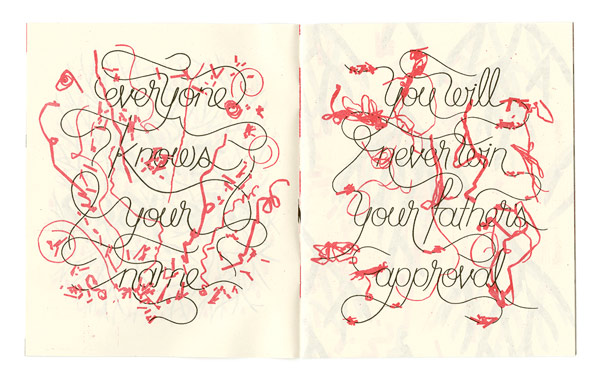 everyone
knows
your
name
you will
never win
your fathers
approval